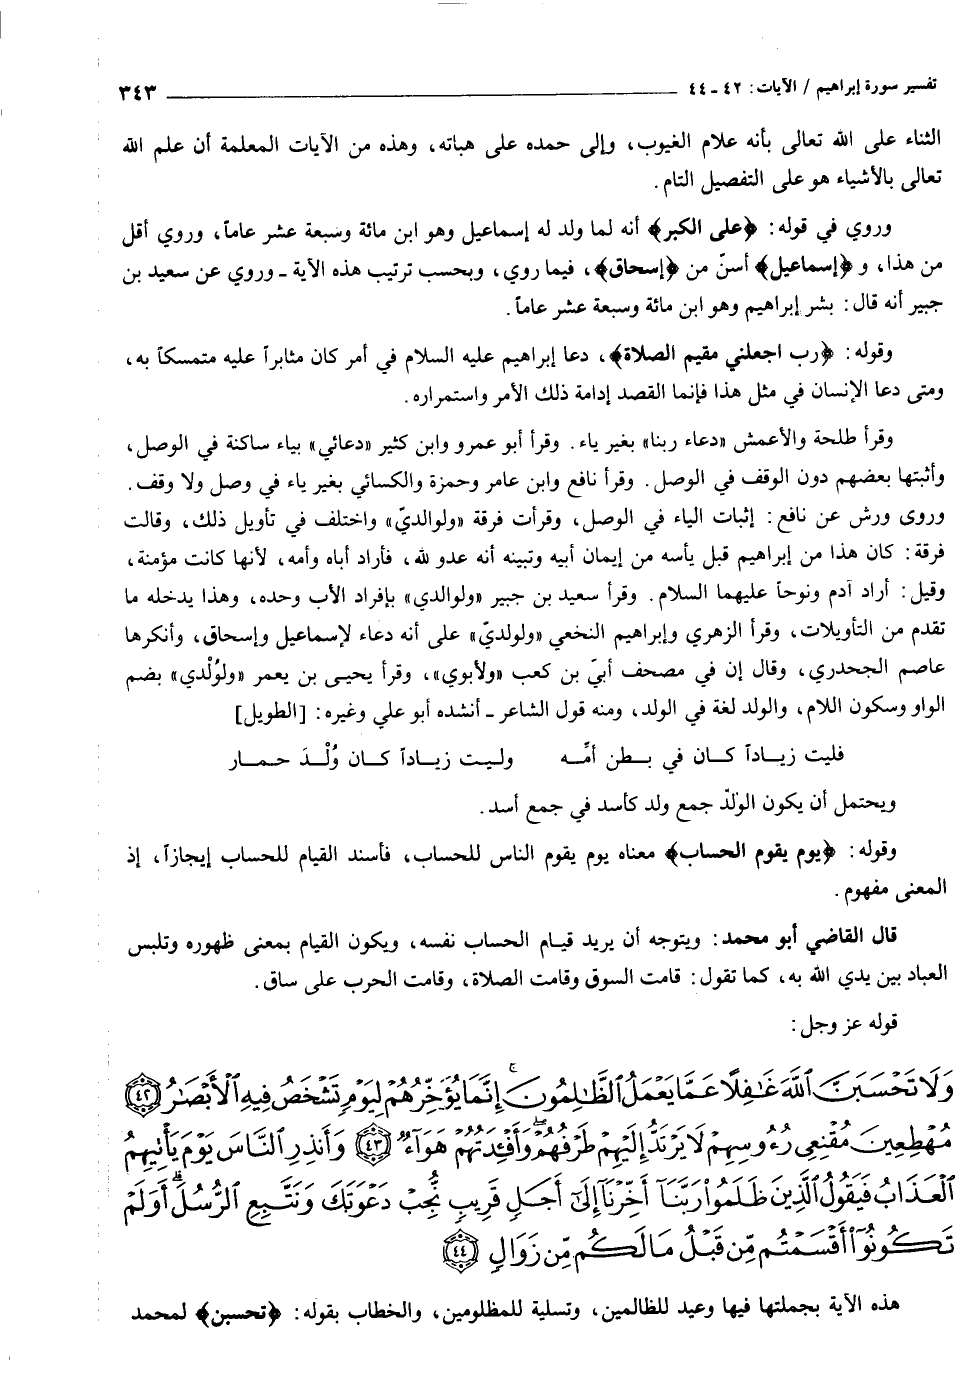 تفسير سورة إبراهيم / الآيات: ٤٢ ـ ٤٤ ٣٤٣
الثناء على الله تعالى بأنه علام الغيوب، وإلى حمده على هباته، وهذه من الآيات المعلمة أن علم الله
تعالى بالأشياء هو على التفصيل التام.
وروي في قوله: ﴿على الكبر﴾ أنه لما ولد له إسماعيل وهو ابن مائة وسبعة عشر عاماً، وروي أقل
من هذا، و ﴿إسماعيل﴾ أسنّ من ﴿إسحاق﴾، فيما روي، وبحسب ترتيب هذه الآية ـ وروي عن سعيد بن
جبير أنه قال: بشر إبراهيم وهو ابن مائة وسبعة عشر عاماً.
وقوله: ﴿رب اجعلني مقيم الصلاة﴾، دعا إبراهيم عليه السلام في أمر كان مثابراً عليه متمسكاً به،
ومتى دعا الإنسان في مثل هذا فإنما القصد إدامة ذلك الأمر واستمراره.
وقرأ طلحة والأعمش «دعاء ربنا» بغير ياء. وقرأ أبو عمرو وابن كثير «دعائي» بياء ساكنة في الوصل،
وأثبتها بعضهم دون الوقف في الوصل. وقرأ نافع وابن عامر وحمزة والكسائي بغير ياء في وصل ولا وقف.
وروى ورش عن نافع: إثبات الياء في الوصل، وقرأت فرقة «ولوالديّ» واختلف في تأويل ذلك، وقالت
فرقة: كان هذا من إبراهيم قبل يأسه من إيمان أبيه وتبينه أنه عدو لله، فأراد أباه وأمه، لأنها كانت مؤمنة،
وقيل: أراد آدم ونوحاً عليهما السلام. وقرأ سعيد بن جبير «ولوالدي» بإفراد الأب وحده، وهذا يدخله ما
تقدم من التأويلات، وقرأ الزهري وإبراهيم النخعي «ولولديّ» على أنه دعاء لإسماعيل وإسحاق، وأنكرها
عاصم الجحدري، وقال إن في مصحف أبيّ بن كعب «ولأبوي»، وقرأ يحيى بن يعمر «ولوُلْدي» بضم
الواو وسكون اللام، والولد لغة في الولد، ومنه قول الشاعر ـ أنشده أبو علي وغيره: [الطويل]
فليت زياداً كان في بطن أمِّه وليت زياداً كان وُلْدَ حمار
ويحتمل أن يكون الولدّ جمع ولد كأسد في جمع أسد.
وقوله: ﴿يوم يقوم الحساب﴾ معناه يوم يقوم الناس للحساب، فأسند القيام للحساب إيجازاً، إذ
المعنى مفهوم.
قال القاضي أبو محمد: ويتوجه أن يريد قيام الحساب نفسه، ويكون القيام بمعنى ظهوره وتلبس
العباد بين يدي الله به، كما تقول: قامت السوق وقامت الصلاة، وقامت الحرب على ساق.
قوله عز وجل:
وَلَا تَحْسَبَنَّ اللَّهَ غَافِلًا عَمَّا يَعْمَلُ الظَّالِمُونَ إِنَّمَا يُؤَخِّرُهُمْ لِيَوْمٍ تَشْخَصُ فِيهِ الْأَبْصَارُ ٤٢
مُهْطِعِينَ مُقْنِعِي رُءُوسِهِمْ لَا يَرْتَدُّ إِلَيْهِمْ طَرْفُهُمْ وَأَفْئِدَتُهُمْ هَوَاءٌ ٤٣ وَأَنْذِرِ النَّاسَ يَوْمَ يَأْتِيهِمُ
الْعَذَابُ فَيَقُولُ الَّذِينَ ظَلَمُوا رَبَّنَا أَخِّرْنَا إِلَى أَجَلٍ قَرِيبٍ نُجِبْ دَعْوَتَكَ وَنَتَّبِعِ الرُّسُلَ أَوَلَمْ
تَكُونُوا أَقْسَمْتُمْ مِنْ قَبْلُ مَا لَكُمْ مِنْ زَوَالٍ ٤٤
هذه الآية بجملتها فيها وعيد للظالمين، وتسلية للمظلومين، والخطاب بقوله: ﴿تحسبن﴾ لمحمد